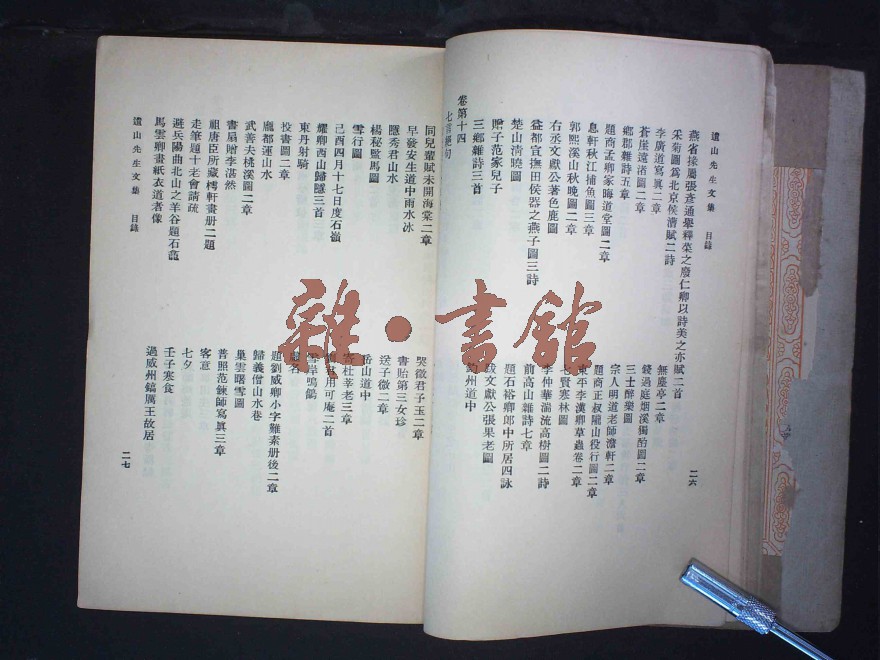 遺山先生文集 目錄
燕省掾屬張彥通舉釋菜之廢仁卿以詩美之亦賦二首
采菊圖為北京侯漕賦二詩
李廣道寫真二章
蒼崖遠渚圖二章
鄉郡雜詩五章
題商孟卿家晦道堂圖二章
息軒秋江捕魚圖三章
郭熙溪山秋晚圖二章
右丞文獻公著色鹿圖
益都宣撫田侯器之燕子圖三詩
楚山清曉圖
贈子范家兒子
三鄉雜詩三首
無塵亭二章
錢過庭烟溪獨酌圖二章
三士醉樂圖
宗人明道老師澹軒二章
題商正叔隴山役行圖二章
東平李漢卿草蟲卷二章
七賢寒林圖
李仲華湍流高樹圖二詩
前高山雜詩七章
題石裕卿郎中所居四詠
跋文獻公張果老圖
州道中
二六
卷第十四
七言絕句
同兒輩賦未開海棠二章
早發安生道中雨水冰
隱秀君山水
楊秘監馬圖
雪行圖
己酉四月十七日度石嶺
耀卿西山歸隱三首
東丹射騎
投書圖二章
龐都運山水
武善夫桃溪圖二章
書扇贈李湛然
祖唐臣所藏樗軒畫册二題
走筆題十老會請疏
避兵陽曲北山之羊谷題石龕
馬雲卿畫紙衣道者像
哭微君子玉二章
書貽第三女珍
送子微二章
岳山道中
寄杜莘老三章
用可庵二首
岸鳴鶻
名
題劉威卿小字難素册後二章
歸義僧山水卷
巢雲曙雪圖
普照范鍊師寫真三章
客意
七夕
壬子寒食
過威州鎬厲王故居
遺山先生文集 目錄
二七
雜·書館